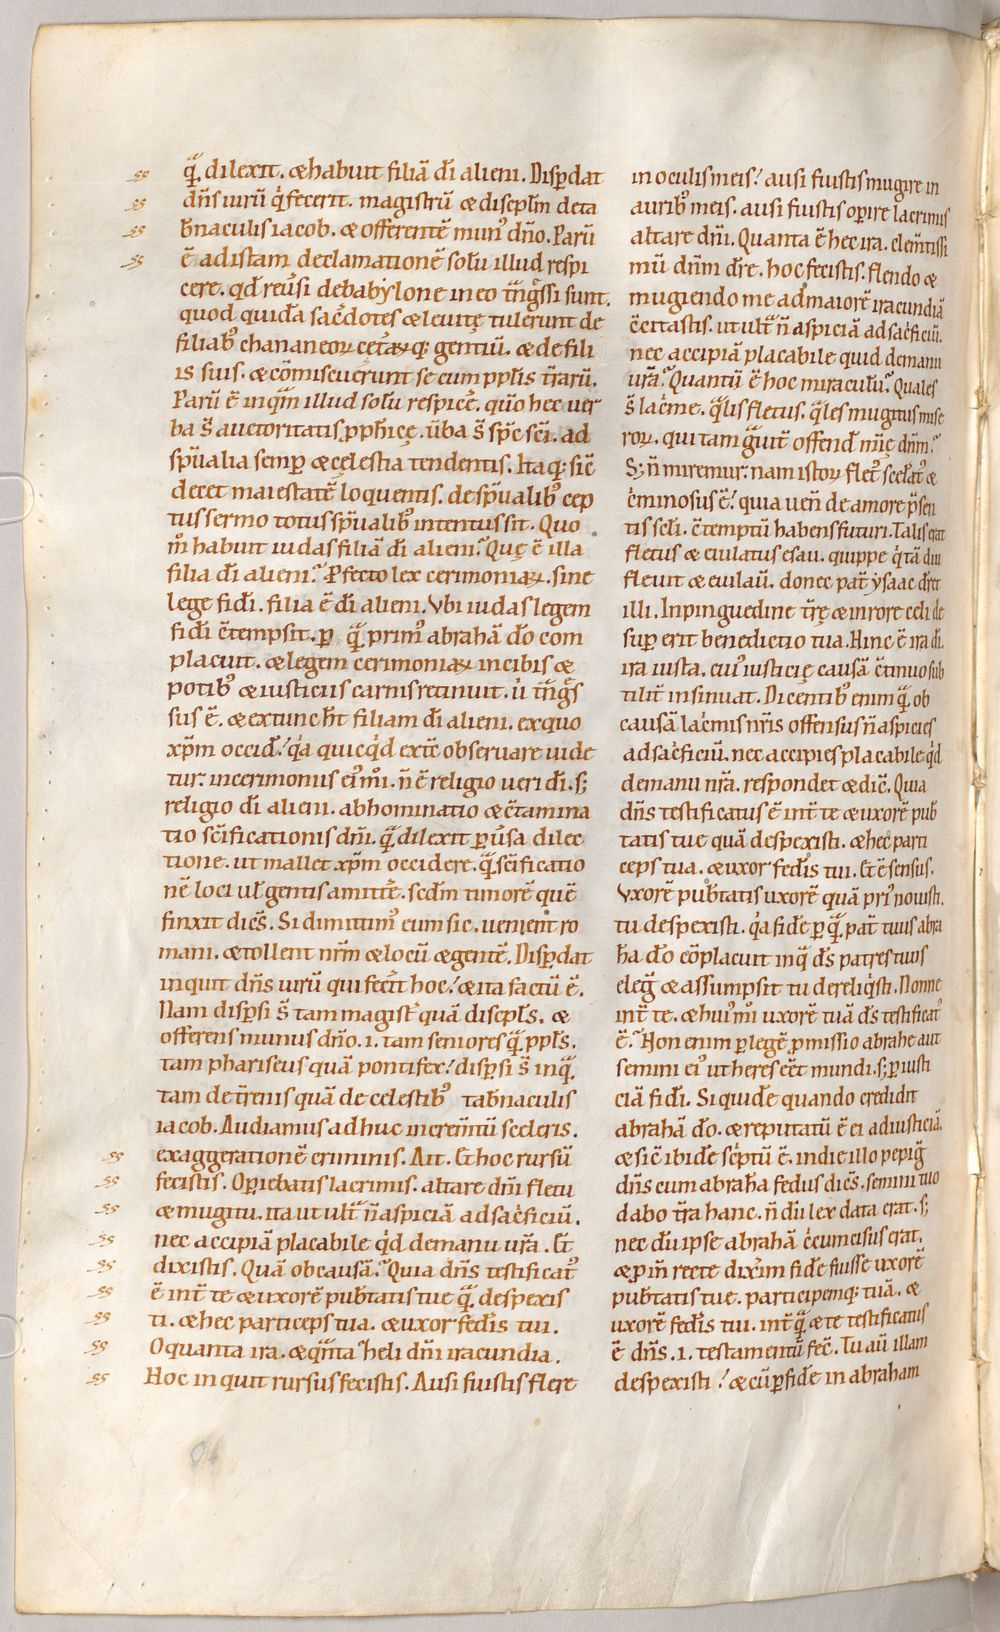 q̄ dilexit. & habuit filiā d̄i alieni. Disp̄dat
dn̄s uirū q̇ fecerit. magistrū & discipl̄m de ta
b̄naculis iacob. & offerentē mun᷒ dn̄o. Parū
ē ad istam declamationē solū illud respi
cere. qd̄ reu̓si de babylone in eo tn̄ḡssi sunt.
quod quidā sac̄dotes & leuitę tulerunt de
filiab᷒ chananeoꝝ cet̄aꝝq; gentiū. & de fili
is suis. & cōmiscuer̄unt se cum pp̄lis t̄rarū.
Parū ē inq̄m illud solū respicē. qūo hec uer
ba s̄ auctoritatis ꝓph̄icę. ūba s̄ sp̄c sc̄i. ad
sp̄ualia semp̄ & cęlestia tendentis. Itaq; sic̄
decet maiestatē loquentis. de sp̄ualib᷒ cep
tus sermo totus sp̄ualib᷒ intentus sit. Quo
m̊ habuit iudas filiā d̄i alieni? Quę ē illa
filia d̄i alieni? P̄fecto lex cerimoniaꝝ. sine
lege fidi. filia ē d̄i alieni. Vbi iudas legem
fidi c̄tempsit. p̄ q̄ prim᷒ abrahā d̄o com
placuit. & legem cerimoniaꝝ in cibis &
potib᷒ & iusticiis carnis retinuit. ú tn̄ḡs
sus ē. & ex tunc h̄t filiam d̄i alieni. ex quo
xp̄m occid̄! q̇a quicq̇d ext̄c obseruare uide
tur. in cerimoniis ei᷒m̊i. n̄ ē religio ueri d̄i. s;
religio d̄i alieni. abhominatio & c̄tamina
tio sc̄ificationis dn̄i. q̄ dilexit p̄u̓sa dilec
tione. ut mallet xp̄m occidere. q̄ sc̄ificatio
nē loci ul̄ gentis amittē. sed̄m timorē quē
finxit dic̄s. Si dimittim᷒ eum sic. uenient ro
mani. & tollent nr̄m & locū & gentē. Disp̄dat
inquit dn̄s uirū qui fec̄it hoc! & ita factū ē.
Nam disp̄si s̄ tam magist̄ quā discipl̄s. &
offerens munus dn̄o. .i. tam seniores q̄ pp̄ls.
tam phariseus quā pontifex! disp̄si s̄ inq̄
tam de t̄renis quā de celestib᷒ tab̄naculis
iacob. Audiamus adhuc increm̄tū sceleris.
exaggerationē criminis. Ait. Et hoc rursū
fecistis. Op̄iebatis lacrimis. altare dn̄i fletu
& mugitu. ita ut ult̄ n̄ aspiciā ad sac̓ficiū.
nec accipiā placabile q̇d de manu ur̄a. Et
dixistis. Quā ob causā? Quia dn̄s testificat᷒
ē int̄ te & uxorē pub̄tatis tue q̄ despexis
ti. & hec particeps tua. & uxor fedīs tui.
O quanta ira. & qn̄ta heli dn̄i iracundia.
Hoc inquit rursus fecistis. Ausi fuistis flere
in oculis meis! ausi fuistis mugire in
aurib᷒ meis. ausi fuistis op̄ire lacrimis
altare dn̄i. Quanta ē hec ira. clem̄tissi
mū dn̄m d̄re. hoc fecistis. flendo &
mugiendo me ad maiorē iracundiā
c̄citastis. ut ult̄ n̄ aspiciā ad sac̓ficiū.
nec accipiā placabile quid de manu
ur̄a? Quantū ē hoc miraculū? Quales
s̄ lac̓me. q̄lis fletus. q̄les mugitus mise
roꝝ. qui tam ḡuit̄ offend̄ mīę dn̄m?
S; n̄ miremur. nam istoꝝ flet᷒ scel̄at᷒ &
c̓minosus ē! quia uen̄ de amore p̄sen
tis scl̄i. c̄temptū habens futuri. Talis erat
fletus & eiulatus esau. quippe q̇ tā diu
fleuit & eiulaū. donec pat̄ ysaac d̄ret
illi. In pinguedine t̄rę & in rore celi de
sup̄ erit benedictio tua. Hinc ē ira d̄i.
ira iusta. cui᷒ iusticię causā c̄tinuo sub
tilit̄ insinuat. Dicentib᷒ enim q̄ ob
causā lac̓mis nr̄is offensus n̄ aspicies
ad sac̓ficiū. nec accipies placabile q̇d
de manu nr̄a. respondet & dic̄. Quia
dn̄s testificatus ē int̄ te & uxorē pub̄
tatis tue quā despexisti. & hec parti
ceps tua. & uxor fedīs tui. Et ē sensus.
Vxorē pub̄tatis uxorē quā pri᷒ nouisti.
tu despexisti. q̇a fidē p̄ q̄ pat̄ tuus abra
h̄a d̄o cōplacuit in q̄ d̄s patres tuos
eleḡ & assumpsit tu dereliq̇sti. Nonne
int̄ te. & hui᷒m̊i uxorē tuā d̄s testificat᷒
ē? Non enim p̄ legē ꝓmissio abrahe aut
semini ei᷒ ut heres eēt mundi. s; p̄ iusti
ciā fidi. Siquidē quando credidit
abrahā d̄o. & reputatū ē ei ad iusticiā.
& sic̄ ibidē sc̓ptū ē. in die illo pepiḡ
dn̄s cum abrah̄a fedus dic̄s. semini tuo
dabo t̄ra hanc. n̄dū lex data erat. s;
nec dū ipse abrahā c̓cumcisus erat.
& ꝓin̄ recte dixim fidē fuisse uxorē
pub̄tatis tue. participemq; tuā. &
uxorē fedīs tui. int̄ q̄ & te testificatus
ē dn̄s. .i. testamentū fec̄. Tu aū illam
despexisti! & cū p̄ fidē in abraham